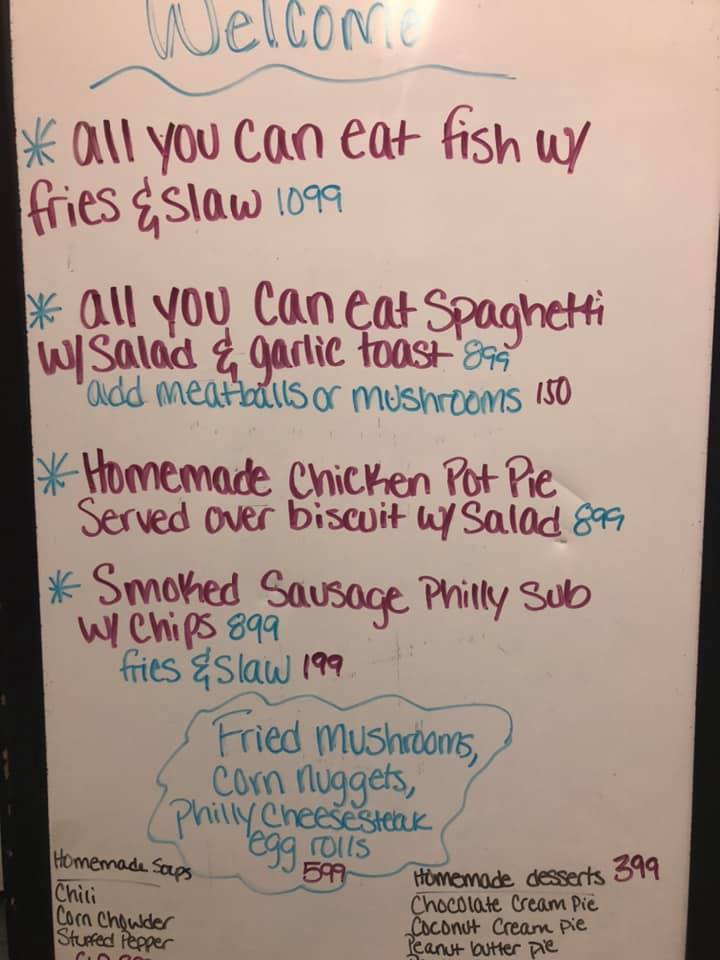 Welcome
* all you can eat fish w/
fries & slaw 1099
* all you can eat Spaghetti
w/Salad & garlic toast 899
add meatballs or mushrooms 150
* Homemade Chicken Pot Pie
Served over biscuit w/ Salad 899
* Smoked Sausage Philly Sub
w/ Chips 899
fries & Slaw 199
Fried mushrooms,
Corn nuggets,
Philly Cheesesteak
egg rolls
599
Homemade Soups
Chili
Corn Chowder
Stuffed Pepper
Homemade desserts 399
Chocolate Cream Pie
Coconut Cream Pie
Peanut butter pie